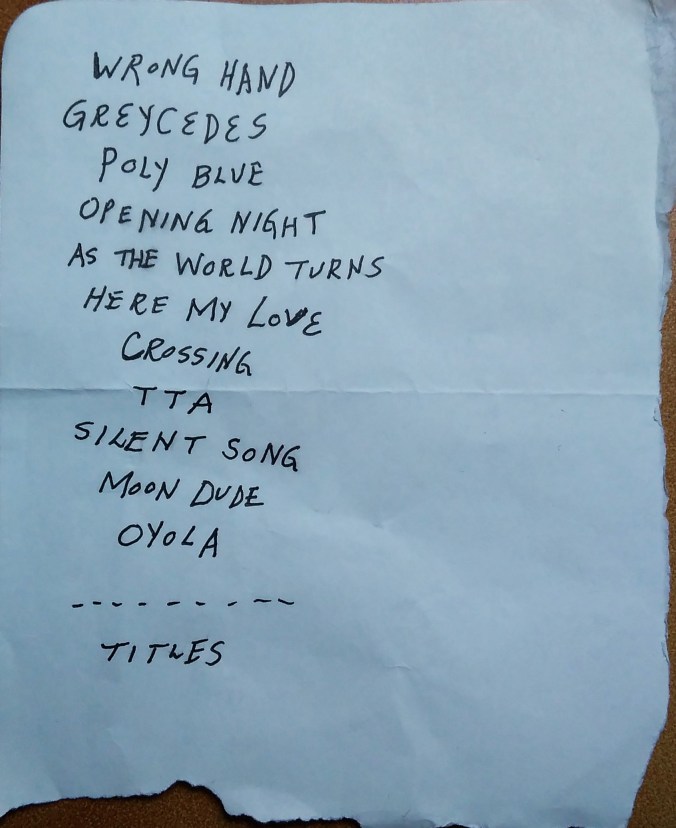 WRONG HAND
GREYCEDES
POLY BLUE
OPENING NIGHT
AS THE WORLD TURNS
HERE MY LOVE
CROSSING
TTA
SILENT SONG
MOON DUDE
OYOLA
---------
TITLES